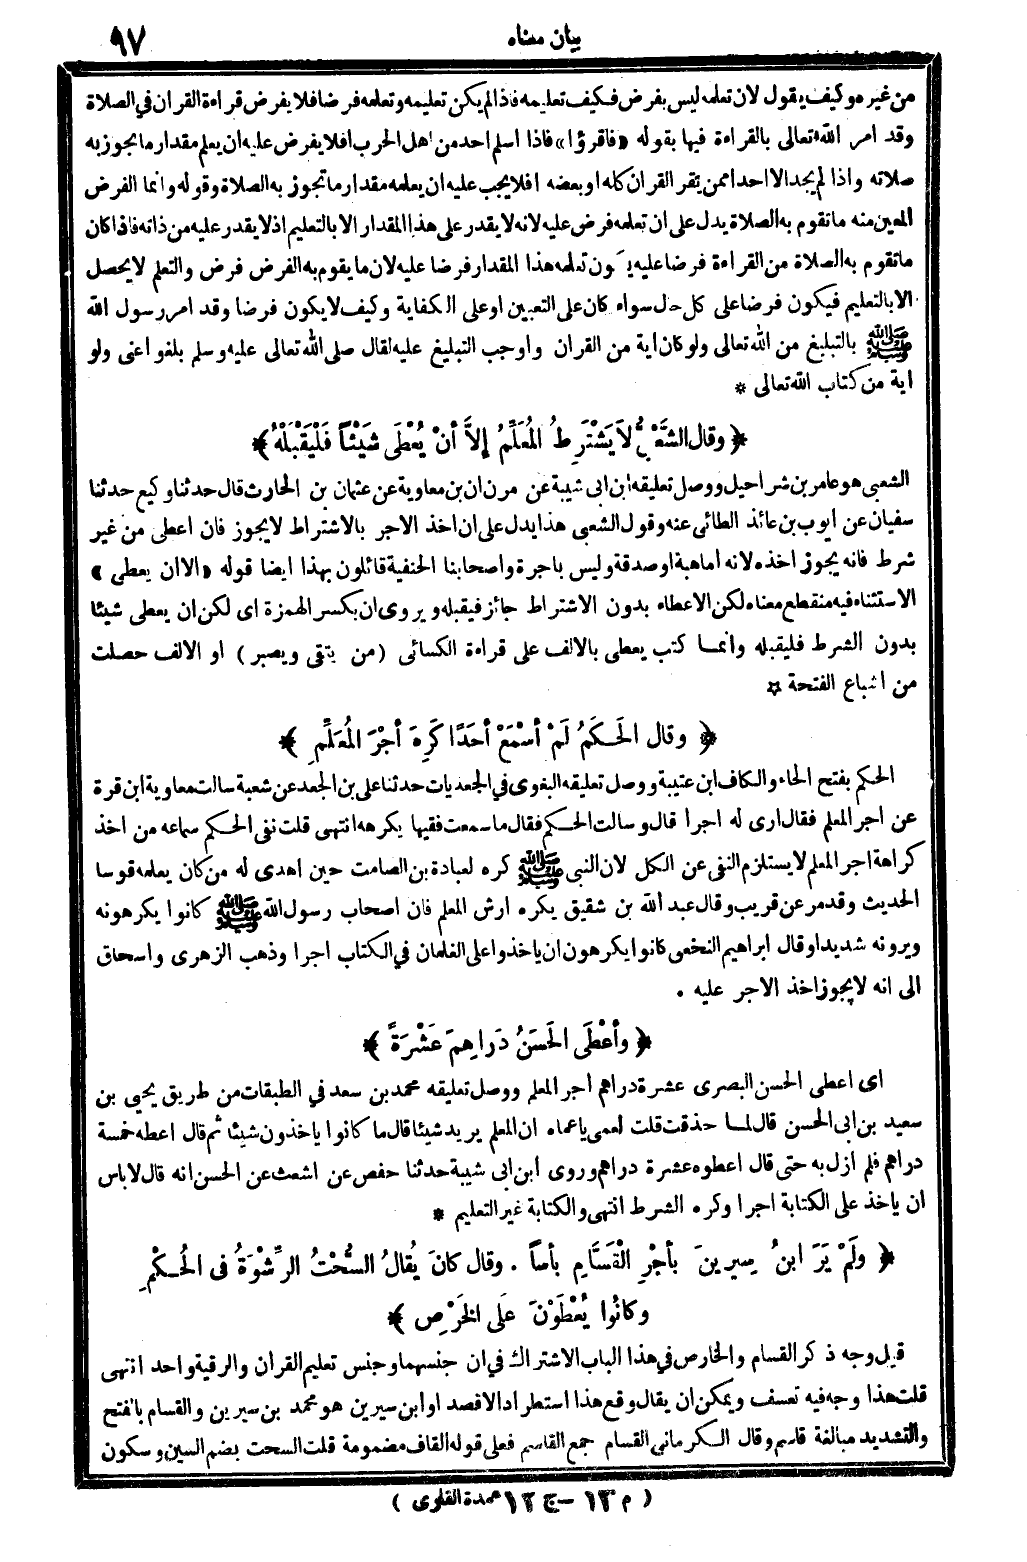 بيان معناه ٩٧
من غيره وكيف يقول لان تعلمه ليس بفرض فكيف تعليمه فاذا لم يكن تعليمه وتعلمه فرضا فلا يفرض قراءة القران في الصلاة
وقد امر الله تعالى بالقراءة فيها بقوله «فاقرؤا» فاذا اسلم احد من اهل الحرب افلا يفرض عليه ان يعلم مقدار ما يجوز به
صلاته واذا لم يجد الا احدا ممن يقر القران كله او بعضه افلا يجب عليه ان يعلمه مقدار ما تجوز به الصلاة وقوله وانما الفرض
المعين منه ما تقوم به الصلاة يدل على ان تعلمه فرض عليه لانه لا يقدر على هذا المقدار الا بالتعليم اذ لا يقدر عليه من ذاته فاذا كان
ما تقوم به الصلاة من القراءة فرضا عليه يكون تعلمه هذا المقدار فرضا عليه لان ما يقوم به الفرض فرض والتعلم لا يحصل
الا بالتعليم فيكون فرضا على كل حال سواء كان على التعيين او على الكفاية وكيف لا يكون فرضا وقد امر رسول الله
ﷺ بالتبليغ من الله تعالى ولو كان اية من القران واوجب التبليغ عليه لقال صلى الله تعالى عليه وسلم بلغوا عنى ولو
اية من كتاب الله تعالى *
﴿ وقال الشَّعْبِيُّ لاَ يَشْتَرِطُ المُعَلِّمُ إلاَّ أنْ يُعْطَى شَيْئاً فَلْيَقْبَلْهُ ﴾
الشعبى هو عامر بن شراحيل ووصل تعليقه ابن ابى شيبة عن مروان بن معاوية عن عثمان بن الحارث قال حدثنا وكيع حدثنا
سفيان عن ايوب بن عائذ الطائى عنه وقول الشعبى هذا يدل على ان اخذ الاجر بالاشتراط لا يجوز فان اعطى من غير
شرط فانه يجوز اخذه لانه اما هبة او صدقة وليس باجرة واصحابنا الحنفية قائلون بهذا ايضا قوله «الا ان يعطى»
الاستثناء فيه منقطع معناه لكن الاعطاء بدون الاشتراط جائز فيقبله ويروى ان بكسر الهمزة اى لكن ان يعطى شيئا
بدون الشرط فليقبله وانما كتب يعطى بالالف على قراءة الكسائى (من يتقى ويصبر) او الالف حصلت
من اشباع الفتحة ☆
﴿ وقال الحَكَمُ لَمْ أسْمَعْ أحَدًا كَرِهَ أجْرَ المُعَلِّمِ ﴾
الحكم بفتح الحاء والكاف ابن عتيبة ووصل تعليقه البغوى في الجعديات حدثنا على بن الجعد عن شعبة سالت معاوية ابن قرة
عن اجر المعلم فقال ارى له اجرا قال وسالت الحكم فقال ما سمعت فقيها يكرهه انتهى قلت نفى الحكم سماعه من اخذ
كراهة اجر المعلم لا يستلزم النفى عن الكل لان النبى ﷺ كره لعبادة بن الصامت حين اهدى له من كان يعلمه قوسا
الحديث وقد مر عن قريب وقال عبد الله بن شقيق يكره ارش المعلم فان اصحاب رسول الله ﷺ كانوا يكرهونه
ويرونه شديدا وقال ابراهيم النخعى كانوا يكرهون ان ياخذوا على الغلمان في الكتاب اجرا وذهب الزهرى واسحاق
الى انه لا يجوز اخذ الاجر عليه .
﴿ وأعْطَى الحَسَنُ دَرَاهِمَ عَشْرَةً ﴾
اى اعطى الحسن البصرى عشرة دراهم اجر المعلم ووصل تعليقه محمد بن سعد في الطبقات من طريق يحيى بن
سعيد بن ابى الحسن قال لما حذقت قلت لعمى يا عماه ان المعلم يريد شيئا قال ما كانوا ياخذون شيئا ثم قال اعطه خمسة
دراهم فلم ازل به حتى قال اعطوه عشرة دراهم وروى ابن ابى شيبة حدثنا حفص عن اشعث عن الحسن انه قال لا باس
ان ياخذ على الكتابة اجرا وكره الشرط انتهى والكتابة غير التعليم *
﴿ ولَمْ يَرَ ابنُ سِيرِينَ بأجْرِ الْقَسَّامِ بأساً . وقال كانَ يُقالُ السُّحْتُ الرِّشْوَةُ فى الحُكْمِ
وكانُوا يُعْطَوْنَ عَلَى الخَرْصِ ﴾
قيل وجه ذكر القسام والخارص في هذا الباب الاشتراك في ان جنسهما وجنس تعليم القران والرقية واحد انتهى
قلت هذا وجه فيه تعسف ويمكن ان يقال وقع هذا استطرادا لاقصدا وابن سيرين هو محمد بن سيرين والقسام بالفتح
والتشديد مبالغة قاسم وقال الكرمانى القسام جمع القاسم فعلى قوله القاف مضمومة قلت السحت بضم السين وسكون
( م ١٣ - ج ١٢ عمدة القارى )